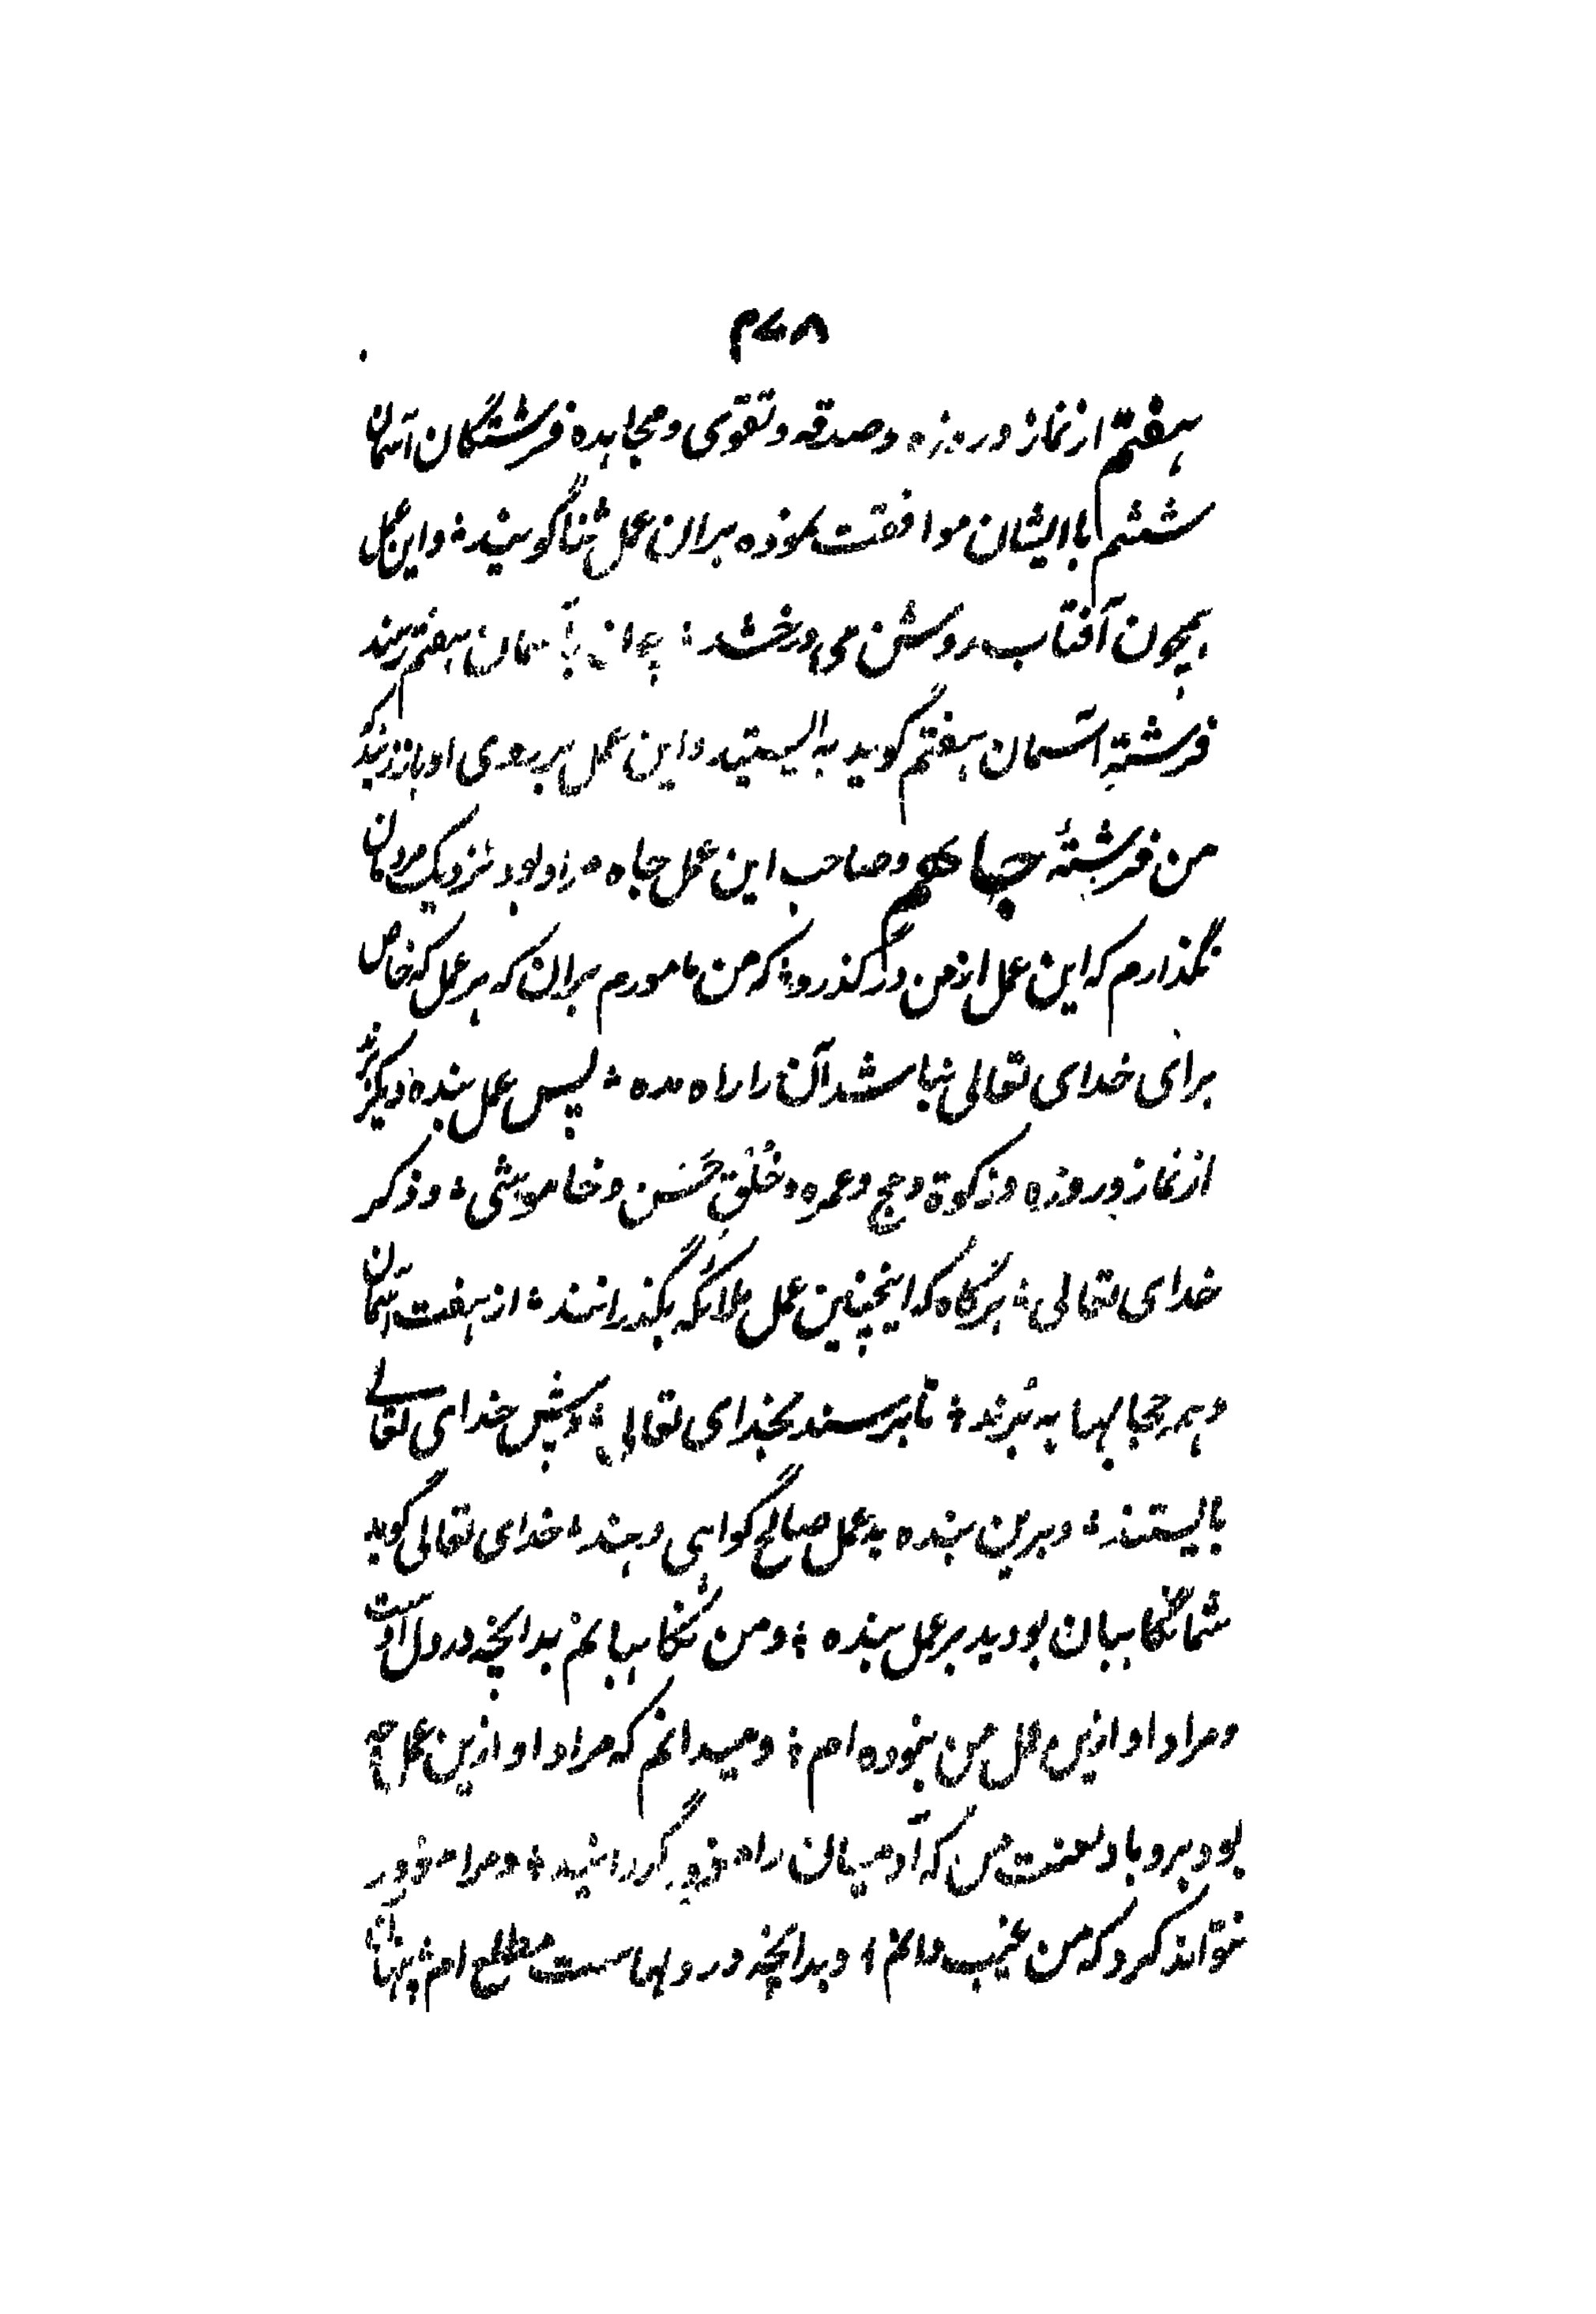 ۴۷۸
هفتم از نماز و روزه و صدقه و تقوی و مجاهده فرشتگان آسمان
ششم با ایشان موافقت نموده بران عمل ثنا گویند ؛ و این عمل
همچون آفتاب روشن می درخشد ؛ چون بآسمان هفتم رسند
فرشتهٔ آسمان هفتم گوید به ایستید و این عمل بر روی او باز زنید که
من فرشتهٔ جاهم و صاحب این عمل جاه مراد بود نزدیک مردمان
نگذارم که این عمل از من در گذرد ؛ که من مامورم بران که هر عمل که خاص
برای خدای تعالی نباشد آن را راه مده ؛ پس عمل بنده دیگر برند
از نماز و روزه و زکوة و حج و عمره و خُلُقِ حَسَن و خاموشی ؛ و ذکر
خدای تعالی ؛ هرگاه که اینچنین عمل ملائکه بگذرانند ؛ از هفت آسمان
و همه حجابها به بُرند ؛ تا برسند بخدای تعالی ؛ و پیش خدای تعالے
بایستند ؛ و برین بنده به عمل صالح گواهی دهند ؛ خدای تعالی گوید
شما نگاهبان بودید بر عمل بنده ؛ و من نگاهبانم بدانچه در دل اوست
و مراد او ازین عمل من نبوده ام ؛ و میدانم که مراد او ازین عمل چه
بود برو باد لعنت من که آدمیان را مغرور گردانید ؛ و مرا مغرور
نتواند کرد که من غیب دانم ؛ و بدانچه در دلهاست مطلع ام ؛ پنهان